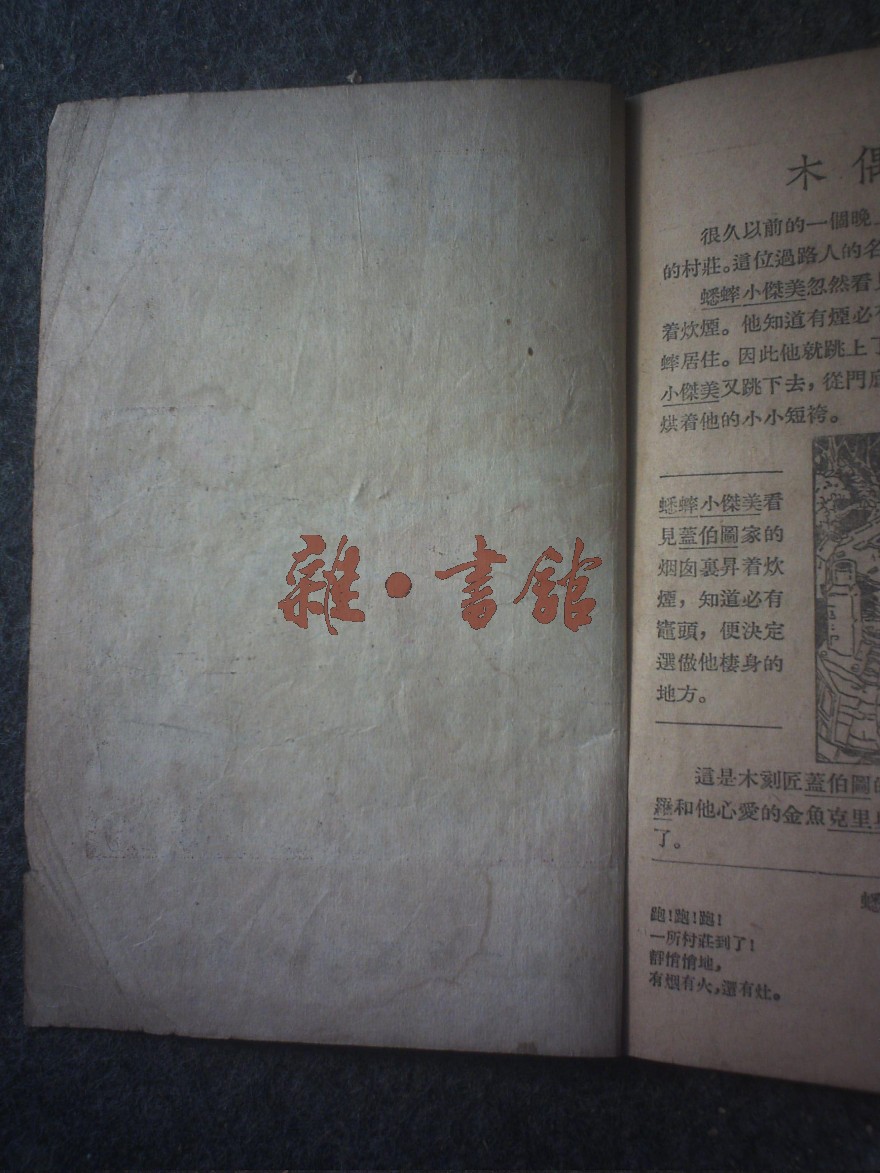 雜·書館
木偶
很久以前的一個晚
的村莊。這位過路人的名
蟋蟀小傑美忽然看見
着炊煙。他知道有煙必有
蟀居住。因此他就跳上了
小傑美又跳下去，從門底
烘着他的小小短袴。
蟋蟀小傑美看
見蓋伯圖家的
烟囱裏昇着炊
煙，知道必有
竈頭，便決定
選做他棲身的
地方。
這是木刻匠蓋伯圖的
羅和他心愛的金魚克里
了。
蟋
跑！跑！跑！
一所村莊到了！
靜悄悄地，
有烟有火，還有灶。